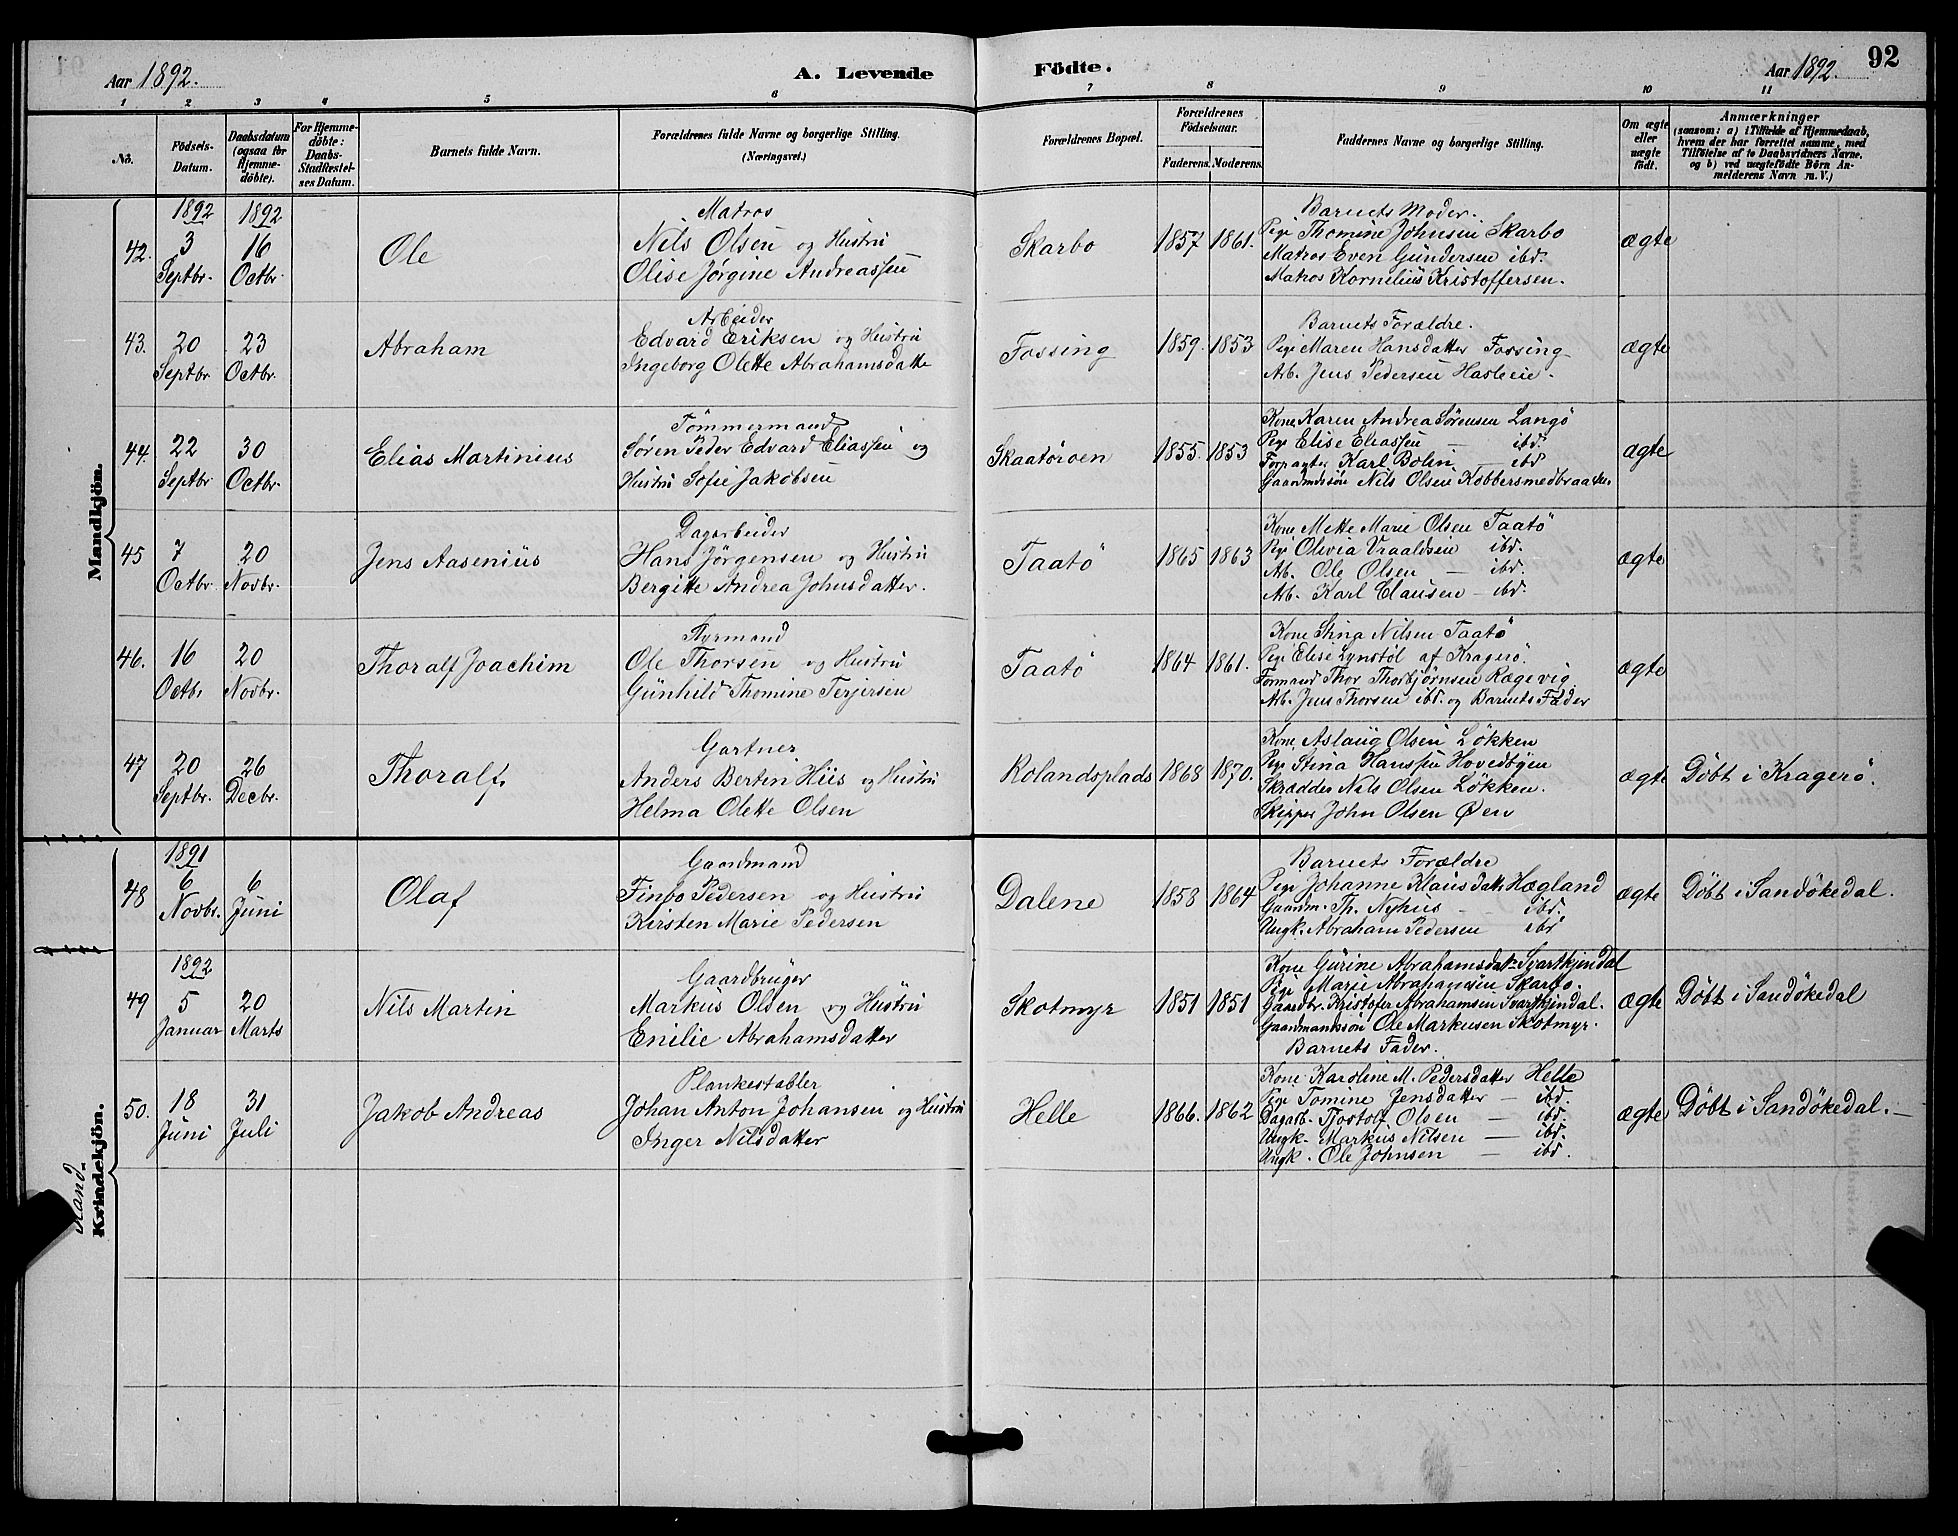 Aar 1892.
A. Levende
Födte.
Aar 1892.
92
1 2 3 4 5 6 7 8 9 10 11
No.
Födsels-
Datum.
Daabsdatum
(ogsaa for
Hjemme-
döbte).
For Hjemme-
döbte:
Daabs-
Stadfæstel-
ses Datum.
Barnets fulde Navn.
Forældrenes fulde Navne og borgerlige Stilling.
(Næringsvei.)
Forældrenes Bopæl.
Forældrenes
Födselsaar.
Faderens. Moderens.
Faddernes Navne og borgerlige Stilling.
Om ægte
eller
uægte
födt.
Anmærkninger
(saasom: a) i Tilfælde af Hjemmedaab,
hvem der har forrettet samme, med
Tilföielse af to Daabsvidners Navne,
og b) ved uægtefödte Börn An-
melderens Navn m. V.)
Mandkjön.
42.
1892
3
Septbr.
1892
16
Octbr.
Ole
Matros
Nils Olsen og Hustru
Olise Jørgine Andreassen
Skarbo
1857 1861.
Barnets Moder.
Pige Thomine Johnsen Skarbo
Matros Even Gundersen ibd.
Matros Kornelius Kristoffersen.
ægte
43.
20
Septbr.
23
Octbr.
Abraham
Arbeider
Edvard Eriksen og Hustru
Ingeborg Olette Abrahamsdatter
Fossing
1859. 1853
Barnets Forældre.
Pige Maren Hansdatter Fossing
Arb. Jens Pedersen Hasleeie.
ægte
44.
22
Septbr.
30
Octbr.
Elias Martinius
Tømmermand
Søren Peder Edvard Eliassen og
Hustru Sofie Jakobsen
Skaatøroen
1855. 1853
Kone Karen Andrea Sørensen Langö
Pige Elise Eliassen — ibd.
Karl Bolin — ibd
Gaardmdssön Nils Olsen Kobbersmedbraaten
ægte
45
7
Octbr.
20
Novbr.
Jens Aasenius
Dagarbeider
Hans Jörgensen og Hustru
Bergitte Andrea Johnsdatter.
Taatö
1865 1863
Kone Mette Marie Olsen Taatö
Pige Olivia Vraaldsen ibd.
Arb. Ole Olsen — ibd.
Arb. Karl Clausen — ibd.
ægte
46.
16
Octbr.
20
Novbr.
Thoralf Joachim
Styrmand
Ole Thorsen og Hustru
Gunhild Thomine Terjersen
Taatö
1864 1861.
Kone Stina Nilsen Taatö
Pige Elise Lynstöl af Kragerö.
Formand Thor Thorbjörnsen Rægevig
Arb. Jens Thorsen ibd. og Barnets Fader
ægte
47
20
Septbr.
26
Decbr.
Thoralf
Gartner
Anders Bertin Hiis og Hustru
Helma Olette Olsen
Rolandsplads
1868 1870.
Kone Aslaug Olsen Løkken
Pige Stina Hanssen Hovedøgen
Skrædder Nils Olsen Løkken.
Skipper John Olsen Øen
ægte
Döbt i Kragerö.
48
1891
6
Novbr.
6
Juni
Olaf
Gaardmand
Finbo Pedersen og Hustru
Kirsten Marie Pedersen
Dalene
1858 1864
Barnets Forældre
Pige Johanne Klausdatt. Hægland
Gaardm. Th. Nyhus — ibd.
Ungk. Abraham Pedersen ibr
ægte
Döbt i Sandökedal.
49
1892
5
Januar
20
Marts
Nils Martin
Gaardbruger
Markus Olsen og Hustru
Enilie Abrahamsdatter
Skotmyr
1851 1851
Kone Gurine Abrahamsdatr Svartkjendal
Pige Marie Abrahamsen Skarbo.
Gaardbr. Kristofer Abrahamsen Svartkjendal.
Gaardmandssön Ole Markusen Skotmyr.
Barnets Fader.
ægte
Döbt i Sandökedal
Mand
Kvindekjön.
50.
18
Juni
31
Juli
Jakob Andreas
Plankestabler
Johan Anton Johansen og Hustru
Inger Nilsdatter
Helle
1866. 1862
Kone Karoline M. Pedersdatter Helle
Pige Tomine Jensdatter — ibd.
Dagarb. Tjostolf Olsen — ibd.
Ungk. Markus Nilsen — ibd.
Ungk. Ole Johnsen — ibd.
ægte
Döbt i Sandökedal.—